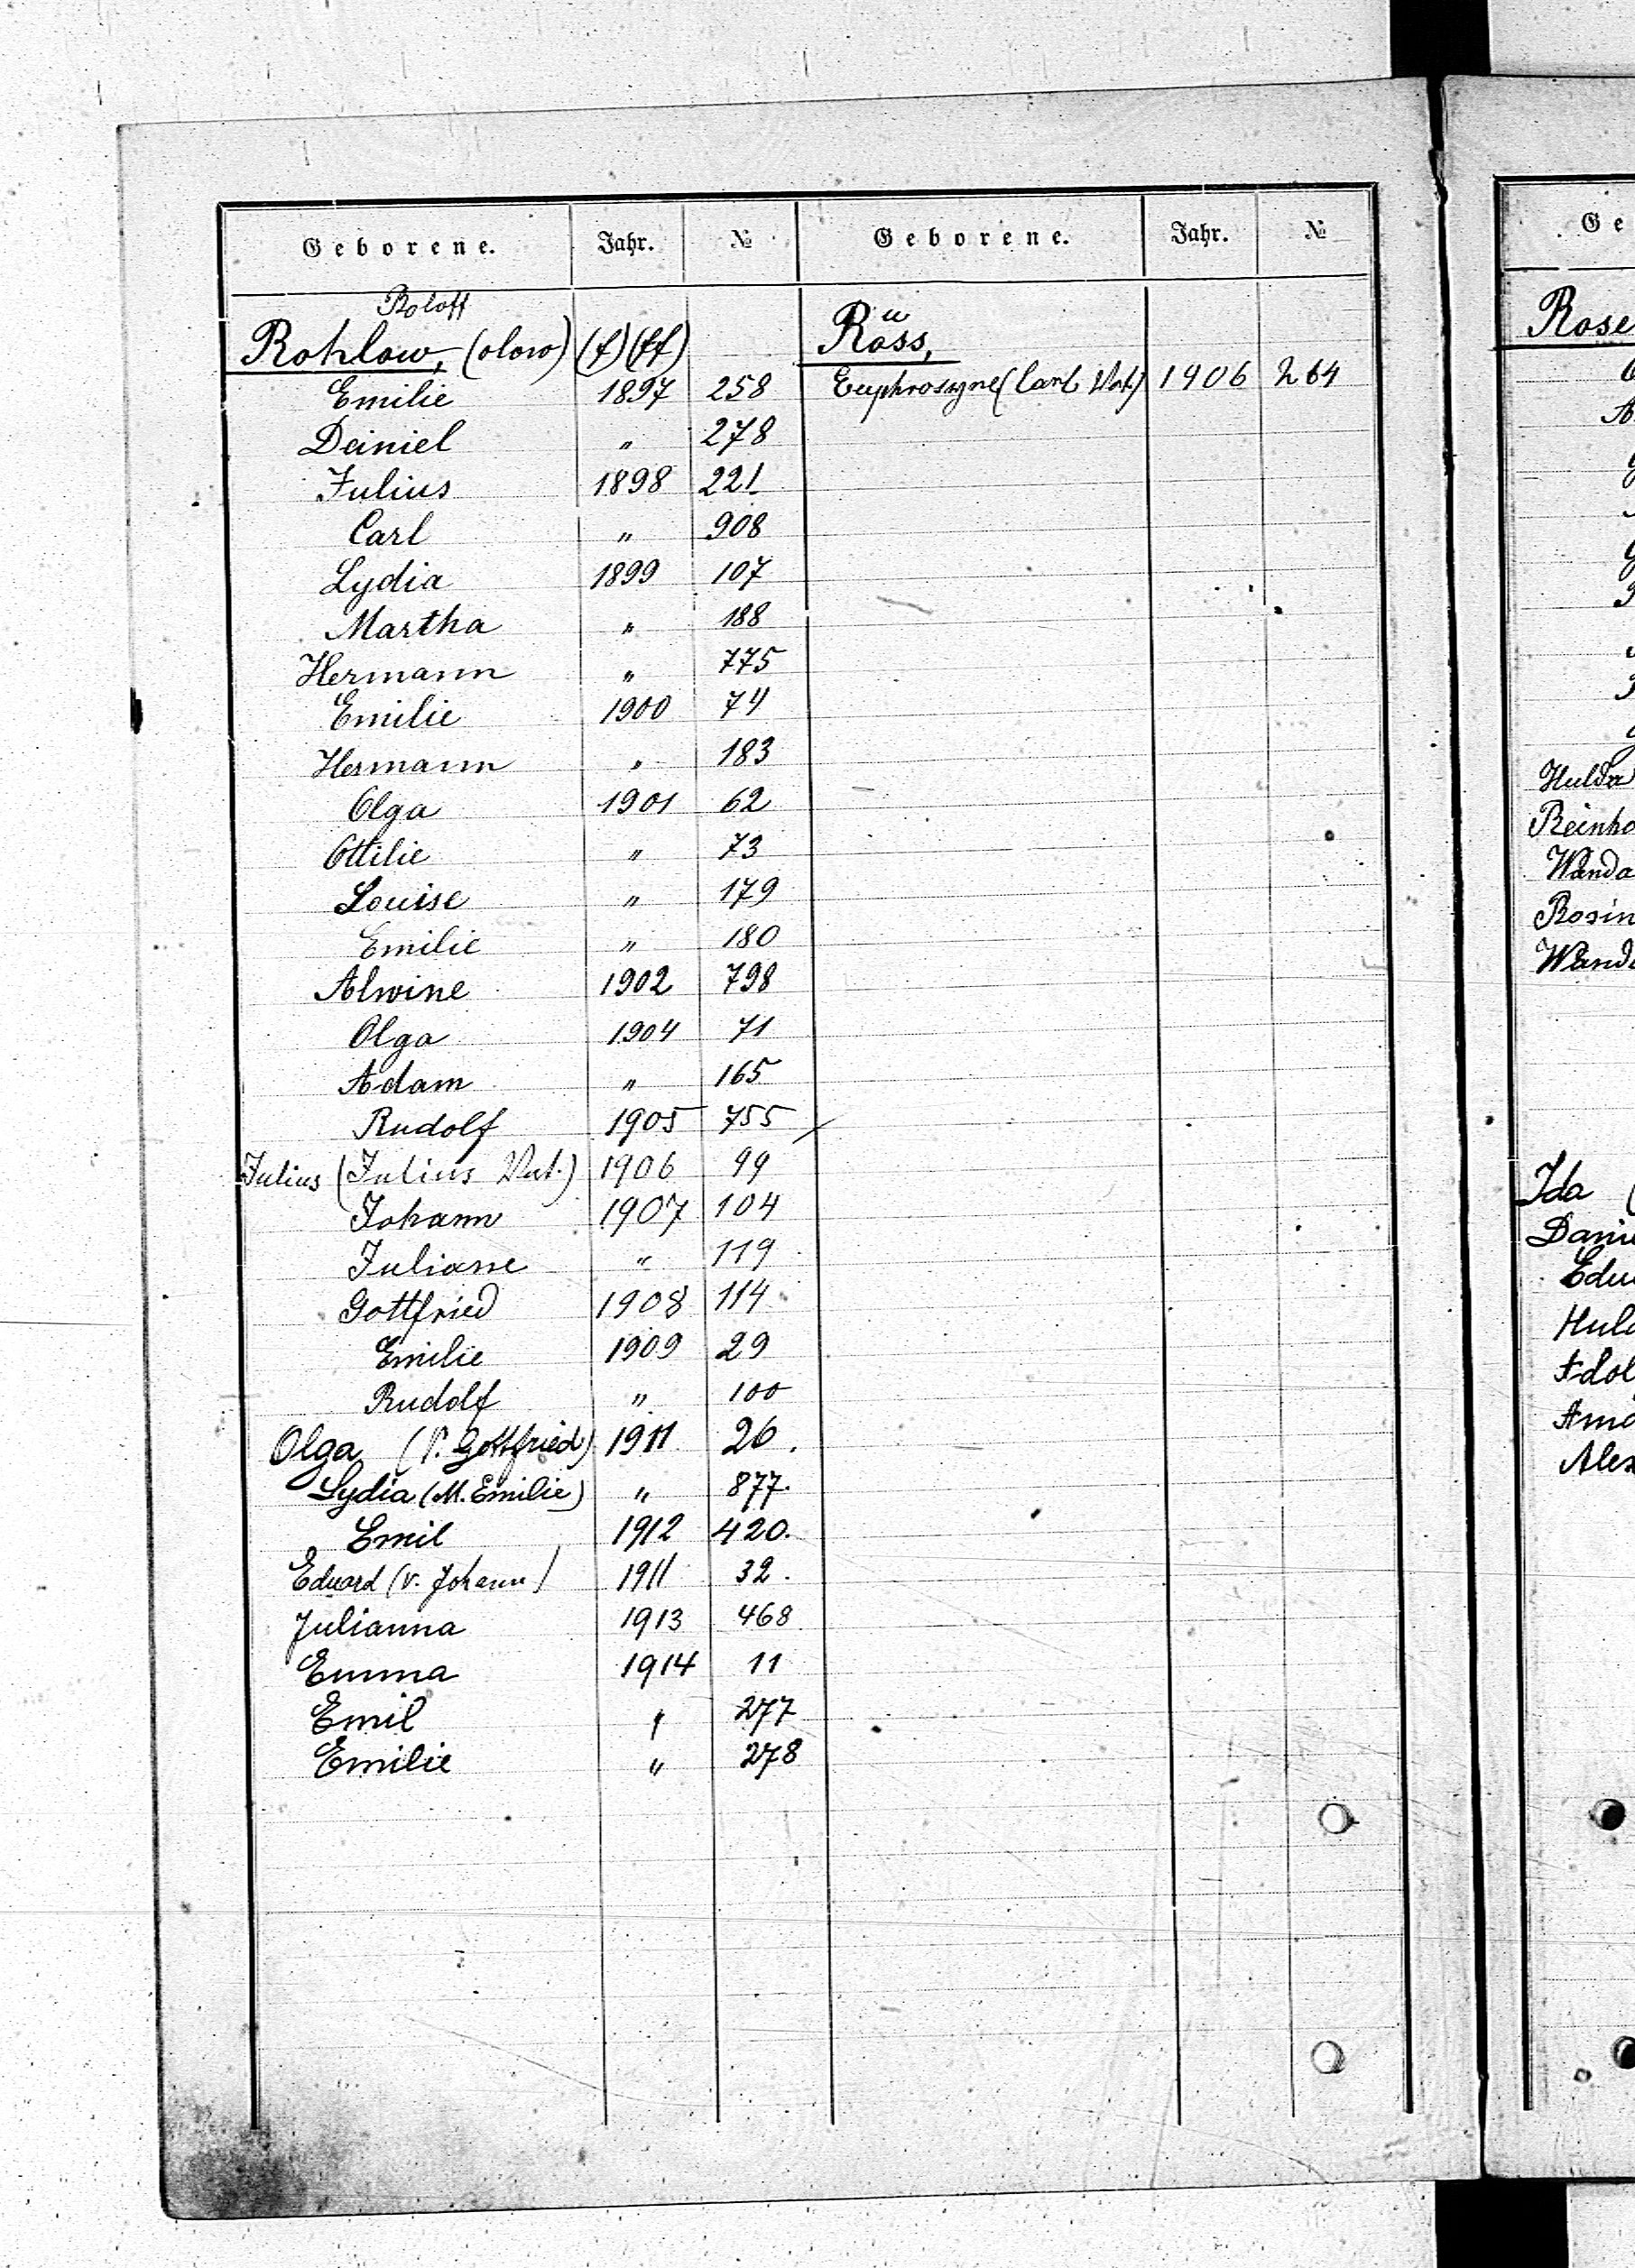 Geborene. Jahr. №
Roloff
Rohlow, (olow) (f) (ff)
Emilie 1897 258
Deiniel " 278
Julius 1898 221
Carl " 908
Lydia 1899 107
Martha " 188
Hermann " 775
Emilie 1900 74
Hermann " 183
Olga 1901 62
Ottilie " 73
Louise " 179
Emilie " 180
Alwine 1902 798
Olga 1904 71
Adam " 165
Rudolf 1905 755
Julius (Julius Vat.) 1906 99
Johann 1907 104
Juliane " 119
Gottfried 1908 114
Emilie 1909 29
Rudolf " 100
Olga (V. Gottfried) 1911 26.
Lydia (M. Emilie) " 877.
Emil 1912 420.
Eduard (V. Johann) 1911 32.
Julianna 1913 468
Emma 1914 11
Emil " 277
Emilie " 278
Geborene. Jahr. №
ü
Röss,
Euphrosyne (Carl Vat.) 1906 264
Ge
Rose
Hulda
Reinho
Wanda
Rosin
Wanda
Ida (
Danie
Edu
Huld
Adol
Ama
Alex